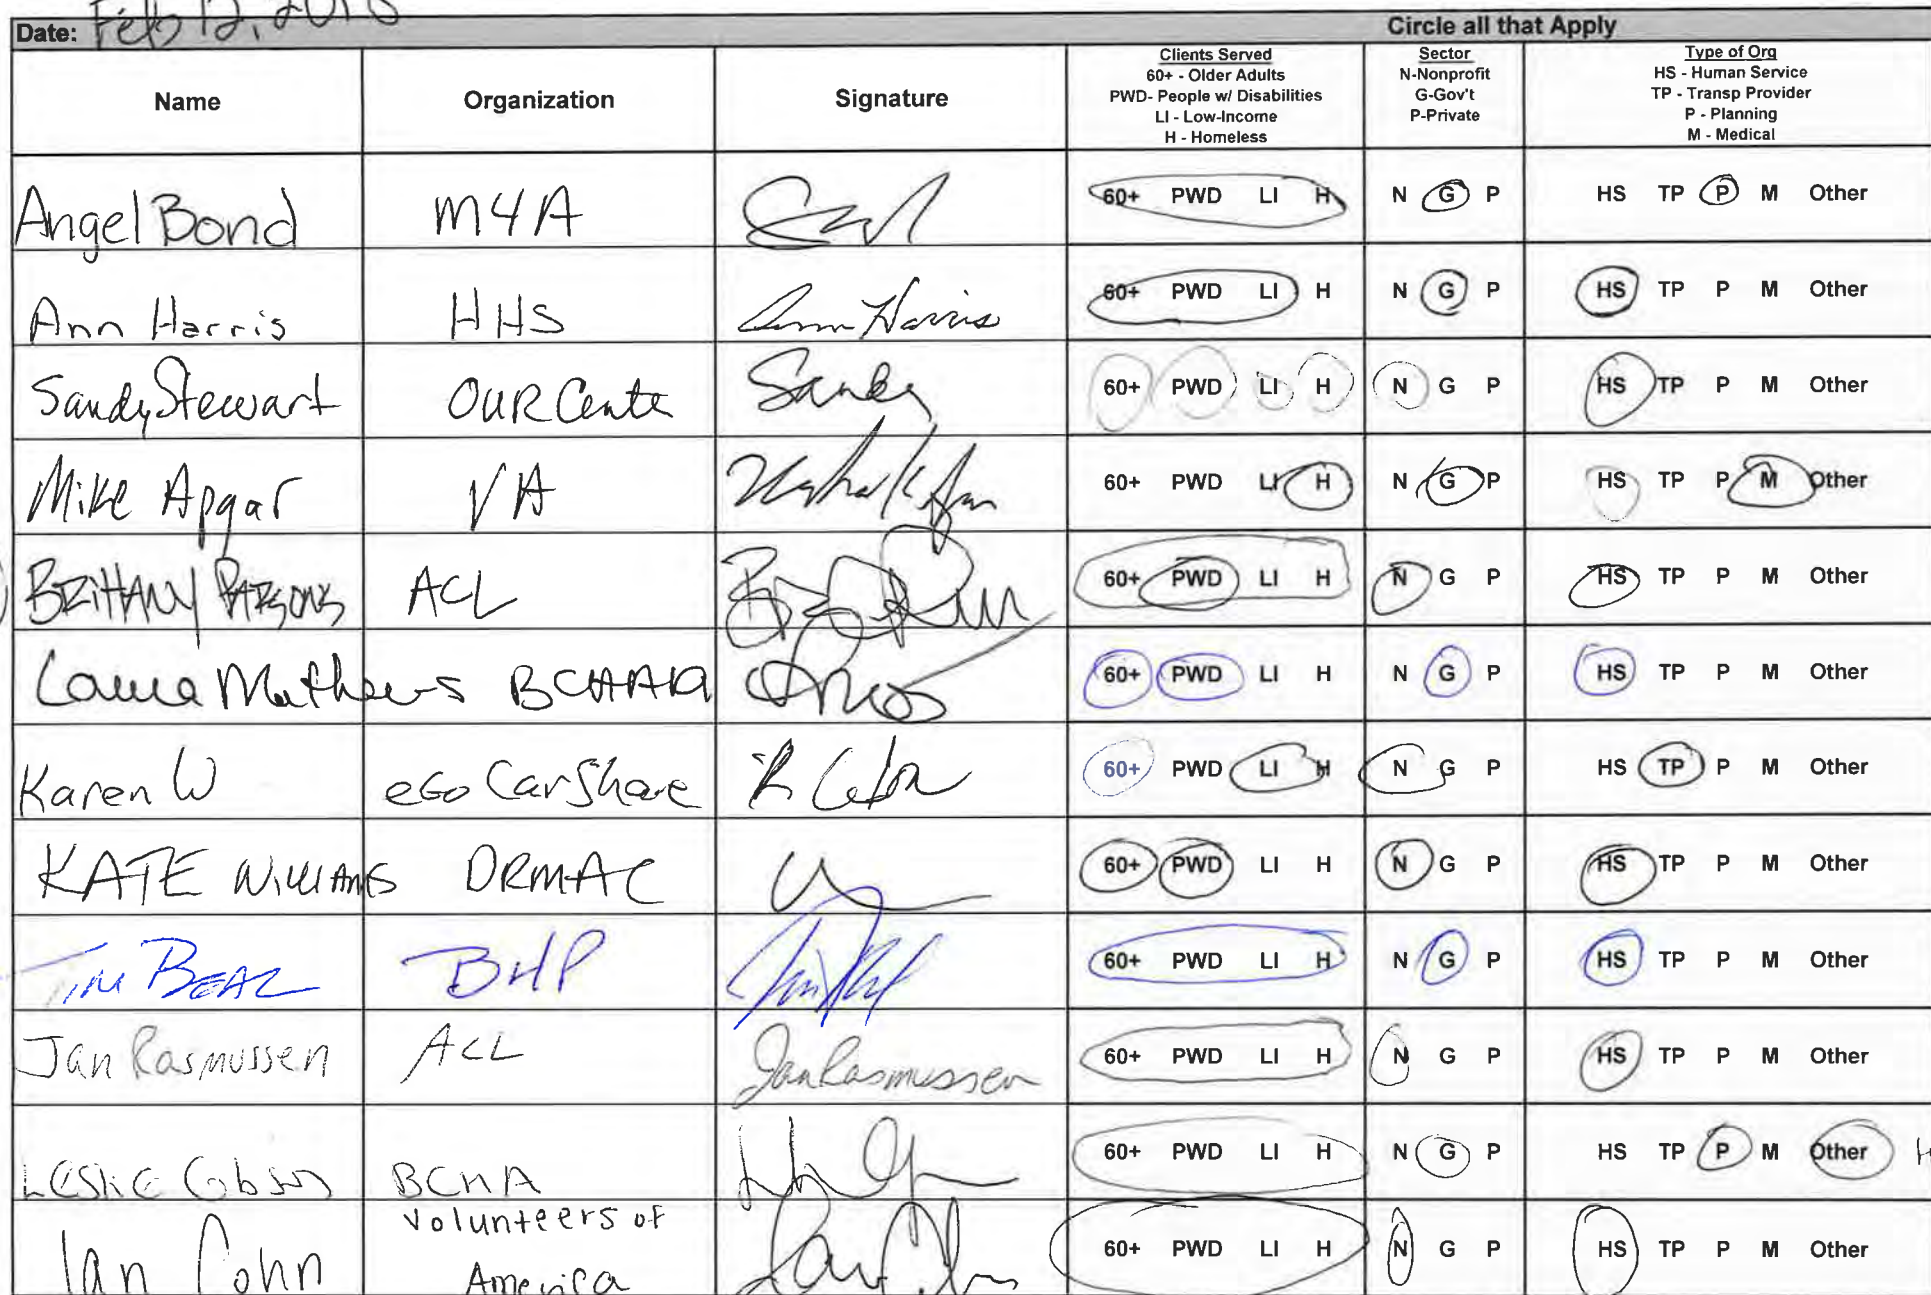 Date: Feb 12, 2018
Circle all that Apply
Name
Organization
Signature
Clients Served
60+ - Older Adults
PWD- People w/ Disabilities
LI - Low-Income
H - Homeless
Sector
N-Nonprofit
G-Gov't
P-Private
Type of Org
HS - Human Service
TP - Transp Provider
P - Planning
M - Medical
Angel Bond M4A 60+ PWD LI H N G P HS TP P M Other
Ann Harris HHS Ann Harris 60+ PWD LI H N G P HS TP P M Other
Sandy Stewart OUR Cente Sandy 60+ PWD LI H N G P HS TP P M Other
Mike Apgar VA 60+ PWD LI H N G P HS TP P M Other
BRITTANY PARSONS ACL 60+ PWD LI H N G P HS TP P M Other
Laura Mathews 60+ PWD LI H N G P HS TP P M Other
Karen W eGo CarShare 60+ PWD LI H N G P HS TP P M Other
KATE WILLIAMS DRMAC 60+ PWD LI H N G P HS TP P M Other
TIM BEAL BHP 60+ PWD LI H N G P HS TP P M Other
Jan Rasmussen ACL Jan Rasmussen 60+ PWD LI H N G P HS TP P M Other
BCHA 60+ PWD LI H N G P HS TP P M Other
Ian Cohn Volunteers of 60+ PWD LI H N G P HS TP P M Other
America